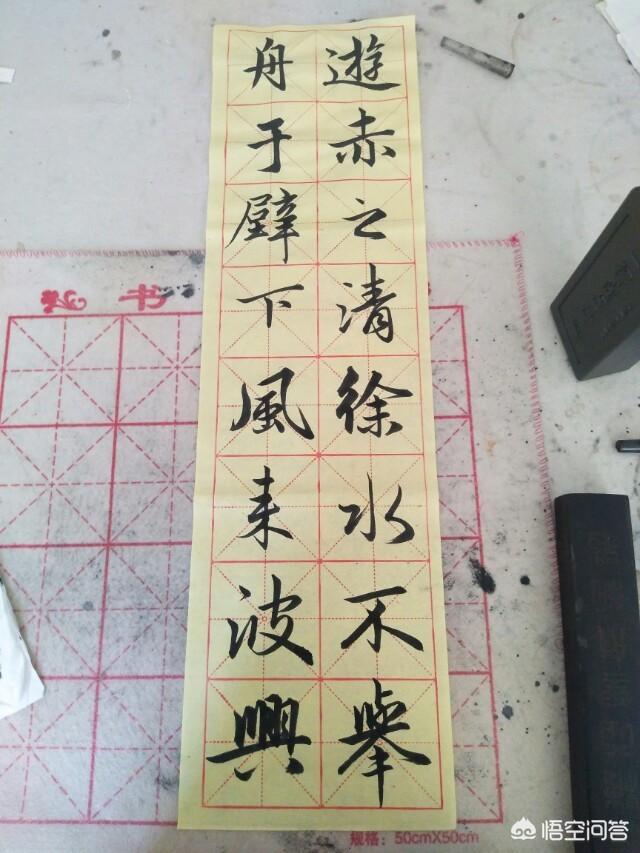 舟遊
于赤
壁之
下清
風徐
来水
波不
興舉
书
规格：50cmX50cm
悟空问答